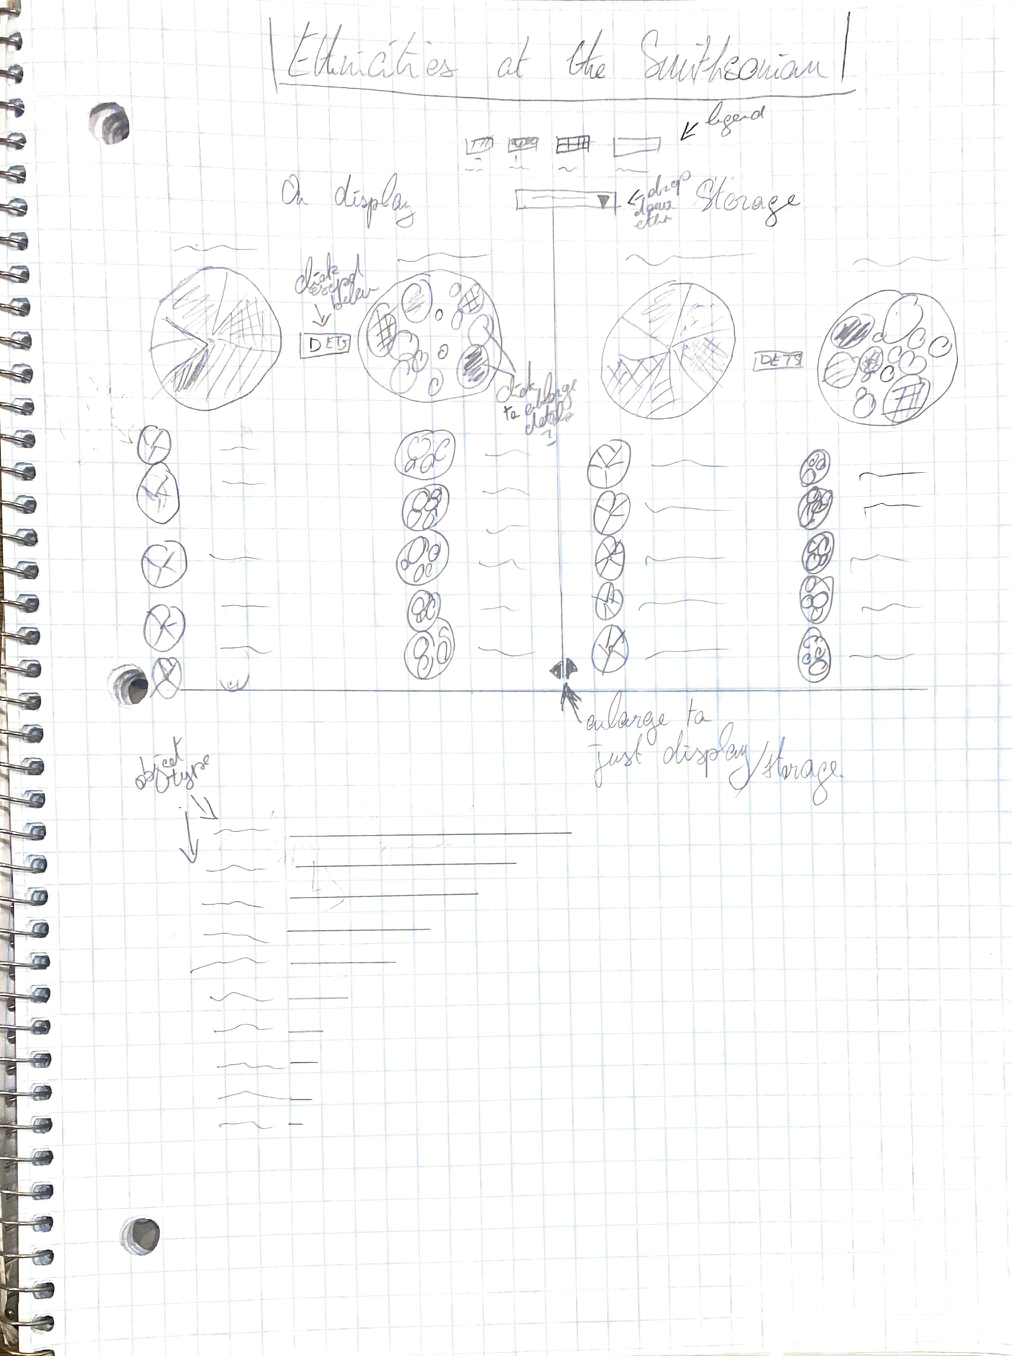 Ethnicities at the Smithsonian
legend
On display
drop
down
ethn
Storage
click
expd
below
DETS
DETS
click
to enlarge
details
?
enlarge to
just display/storage
object
type